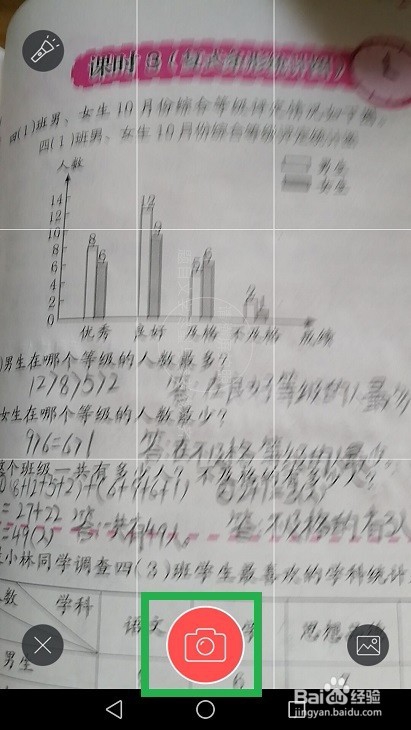 课时 3 (复式条形统计图)
四(1)班男、女生10月份综合等级评定情况如下图。
四(1)班男、女生10月份综合等级评定统计图
人数
男生
女生
14
12
10
8
6
4
2
0
8 6 12 9 5 6 2 1
优秀 良好 及格 不及格 成绩
男生在哪个等级的人数最多?
12>8>5>2 答:在良好等级的人最多
女生在哪个等级的人数最少?
9>6=6>1 答:在不及格等级的人最少。
整个班级一共有多少人? 不及格的有多少人?
①(8+12+5+2)+(6+9+6+1) ②2+1=3(人)
=27+22
=49(人) 答:一共有49人。 答:不及格的有3人
是小林同学调查四(3)班学生最喜欢的学科统计
人数 学科
语文 学 思想品德
男生 6
Baidu经验
jingyan.baidu.com